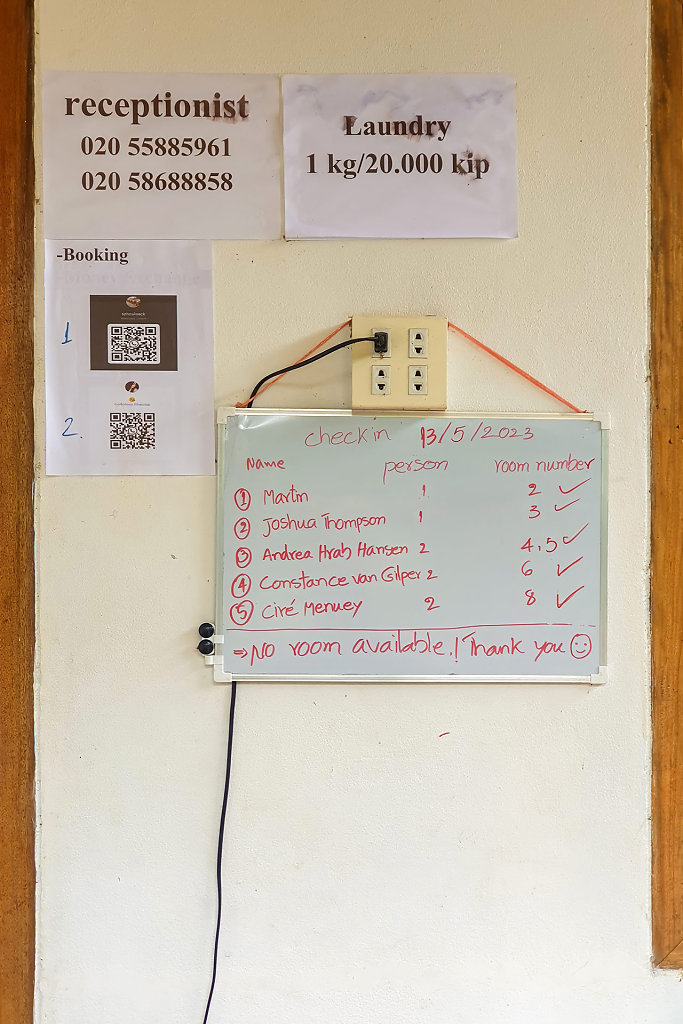 receptionist
020 55885961
020 58688858
Laundry
1 kg/20.000 kip
-Booking
1
2.
check in 13/5/2023
Name person room number
① Martin 1 2 ✓
② Joshua Thompson 1 3 ✓
③ Andrea Hrab Hansen 2 4,5 ✓
④ Constance van Gilper 2 6 ✓
⑤ Ciré Menuey 2 8 ✓
⇒ No room available.! Thank you ☺